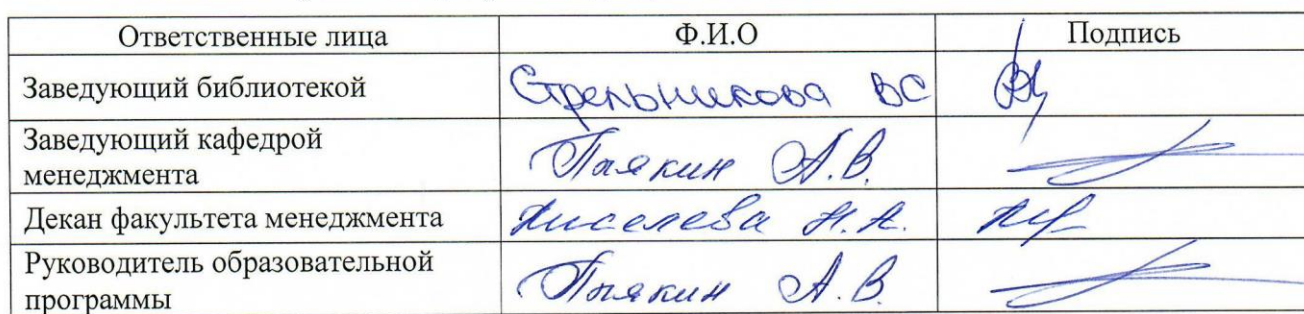 Ответственные лица Ф.И.О Подпись
Заведующий библиотекой Стрельникова ВС
Заведующий кафедрой
менеджмента А.В.
Декан факультета менеджмента Киселева Н.А.
Руководитель образовательной
программы А.В.